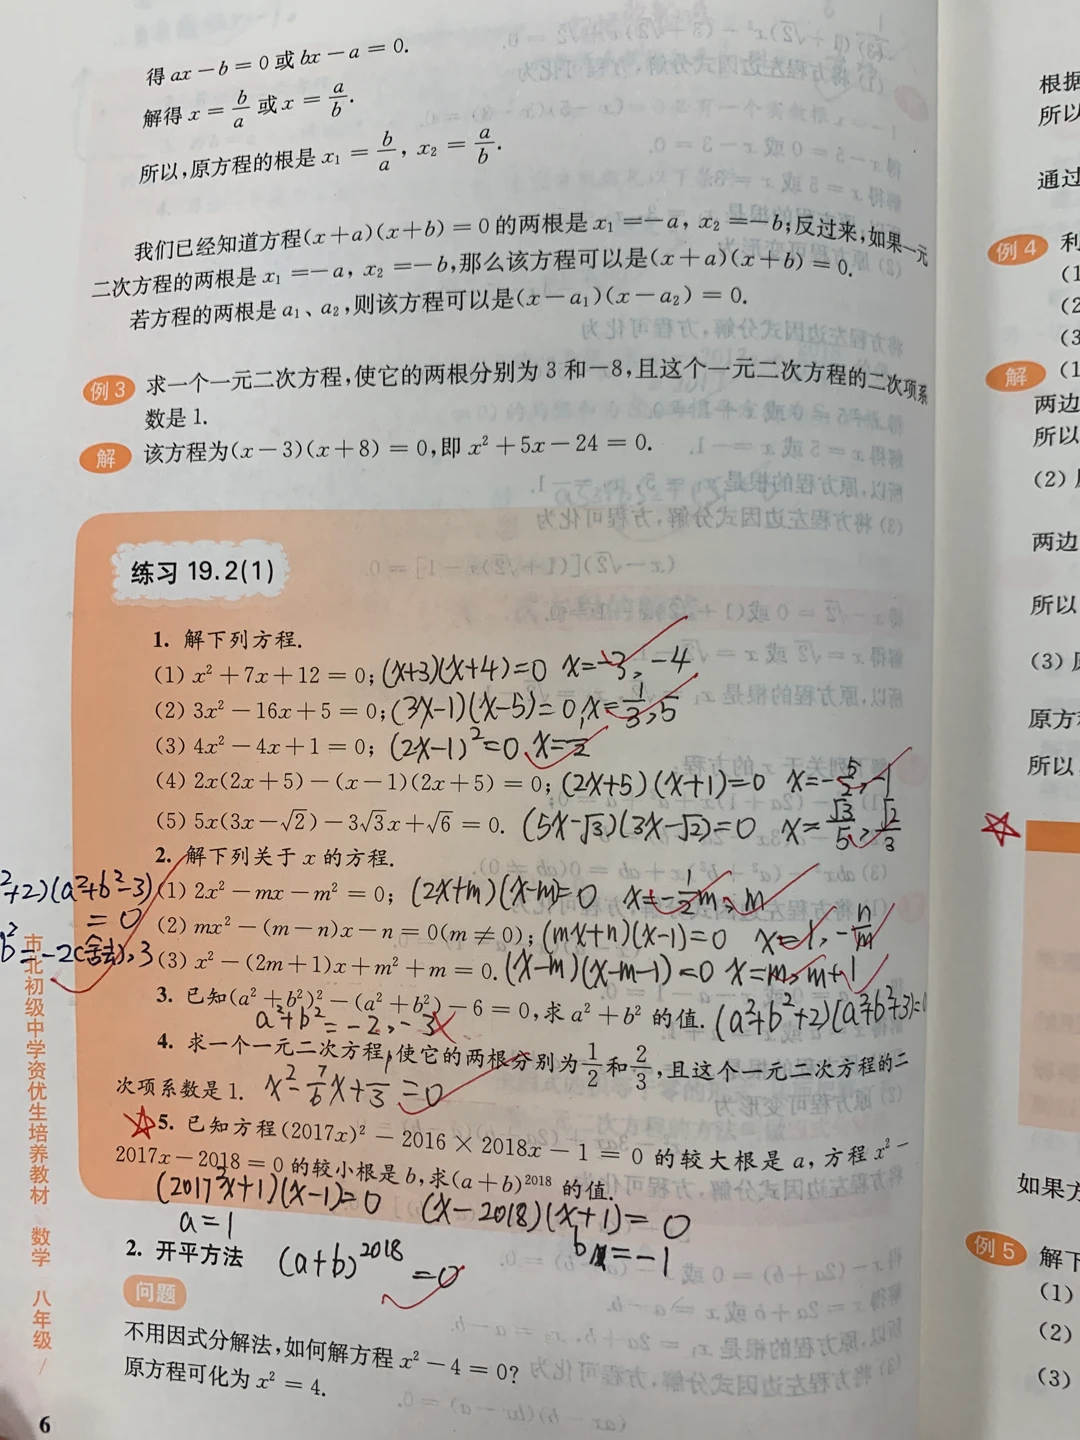 得 ax－b＝0 或 bx－a＝0.
解得 x＝b/a 或 x＝a/b.
所以,原方程的根是 x₁＝b/a, x₂＝a/b.
我们已经知道方程(x＋a)(x＋b)＝0 的两根是 x₁＝－a, x₂＝－b;反过来,如果一元
二次方程的两根是 x₁＝－a, x₂＝－b,那么该方程可以是(x＋a)(x＋b)＝0.
若方程的两根是 a₁、a₂,则该方程可以是(x－a₁)(x－a₂)＝0.
例 3 求一个一元二次方程,使它的两根分别为 3 和－8,且这个一元二次方程的二次项系
数是 1.
解 该方程为(x－3)(x＋8)＝0,即 x²＋5x－24＝0.
练习 19.2(1)
1. 解下列方程.
(1) x²＋7x＋12＝0; (x+3)(x+4)=0 x=-3, -4
(2) 3x²－16x＋5＝0; (3x-1)(x-5)=0, x=1/3, 5
(3) 4x²－4x＋1＝0; (2x-1)²=0 x=1/2
(4) 2x(2x＋5)－(x－1)(2x＋5)＝0; (2x+5)(x+1)=0 x=-5/2, -1
(5) 5x(3x－√2)－3√3x＋√6＝0. (5x-√3)(3x-√2)=0 x=√3/5, √2/3
2. 解下列关于 x 的方程.
²+2)(a²+b²-3)
=0
b²=-2(舍去), 3
(1) 2x²－mx－m²＝0; (2x+m)(x-m)=0 x=-1/2m, m
(2) mx²－(m－n)x－n＝0(m≠0); (mx+n)(x-1)=0 x=1, -n/m
(3) x²－(2m＋1)x＋m²＋m＝0. (x-m)(x-m-1)=0 x=m, m+1
3. 已知(a²＋b²)²－(a²＋b²)－6＝0,求 a²＋b² 的值. (a²+b²+2)(a²+b²+3)=
a²+b²=-2, -3
4. 求一个一元二次方程,使它的两根分别为 1/2 和 2/3,且这个一元二次方程的二
次项系数是 1. x²-7/6x+1/3=0
5. 已知方程(2017x)²－2016×2018x－1＝0 的较大根是 a,方程 x²－
2017x－2018＝0 的较小根是 b,求(a＋b)²⁰¹⁸ 的值.
(2017²x+1)(x-1)=0 (x-2018)(x+1)=0
a=1 b=-1
2. 开平方法 (a+b)²⁰¹⁸=0
问题
不用因式分解法,如何解方程 x²－4＝0?
原方程可化为 x²＝4.
市北初级中学资优生培养教材 数学 八年级/
6
根据
所以
通过
例 4 利
(1
(2
(3
解 (1
两边
所以
(2)
两边
所以
(3)
原方
所以
如果方
例 5 解下
(1)
(2)
(3)